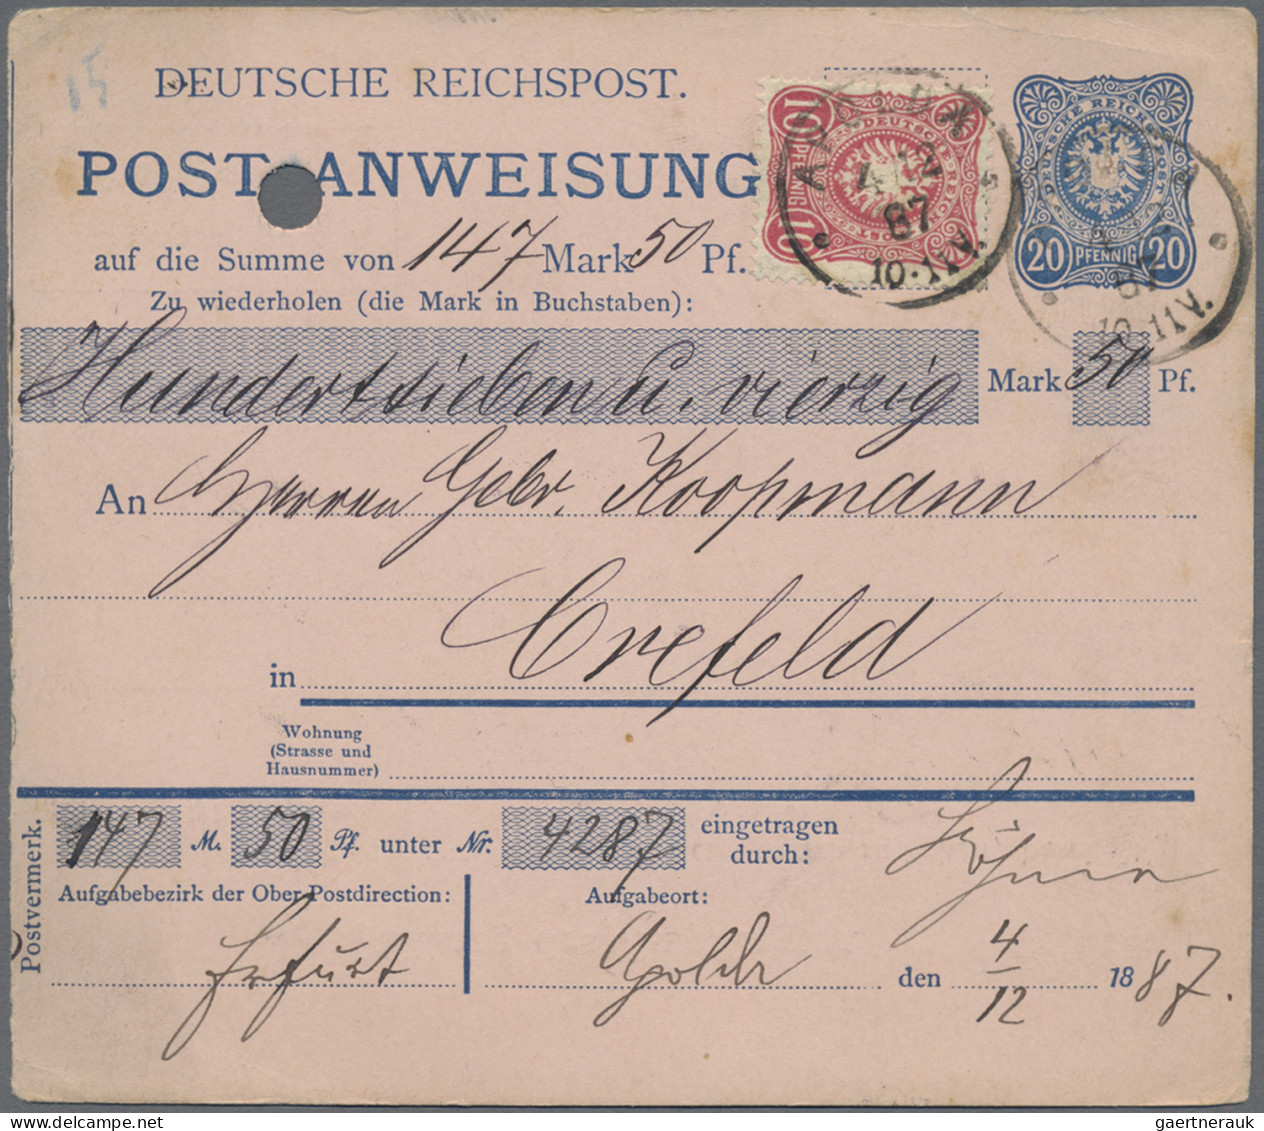 15
DEUTSCHE REICHSPOST.
POST-ANWEISUNG
auf die Summe von 147 Mark 50 Pf.
Zu wiederholen (die Mark in Buchstaben):
10 PFENNIG 10
DEUTSCHE REICHSPOST
20 PFENNIG 20
4 12
87
10-11V.
4 12
87
10-11V.
Hundertsieben u. vierzig Mark 50 Pf.
An Herren Gebr. Koopmann
in Crefeld
Wohnung
(Strasse und
Hausnummer)
Postvermerk.
147 M. 50 Pf. unter Nr. 4287 eingetragen
durch:
Aufgabebezirk der Ober-Postdirection: Aufgabeort:
Erfurt den 4/12 1887.
gaertnerauk